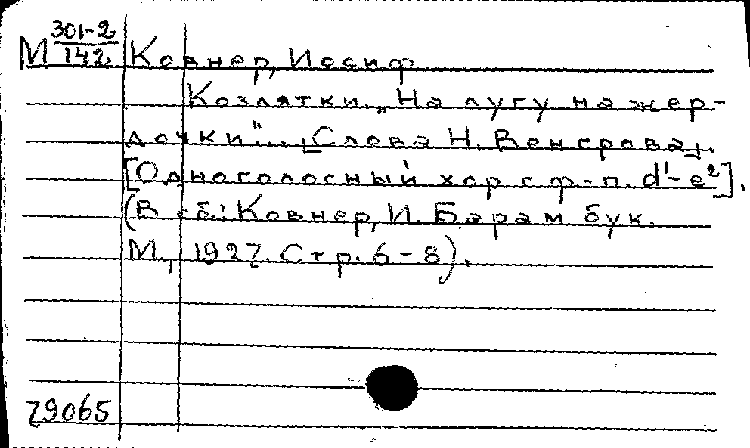 М 301-2/142 Ковнер, Иосиф
Козлятки. „На лугу на жер-
дочки"... [Слова Н. Венгрова].
[Одноголосный хор с ф-п. d¹-e²].
(В сб.: Ковнер, И. Барам бук.
М., 1927. Стр. 6-8).
79065